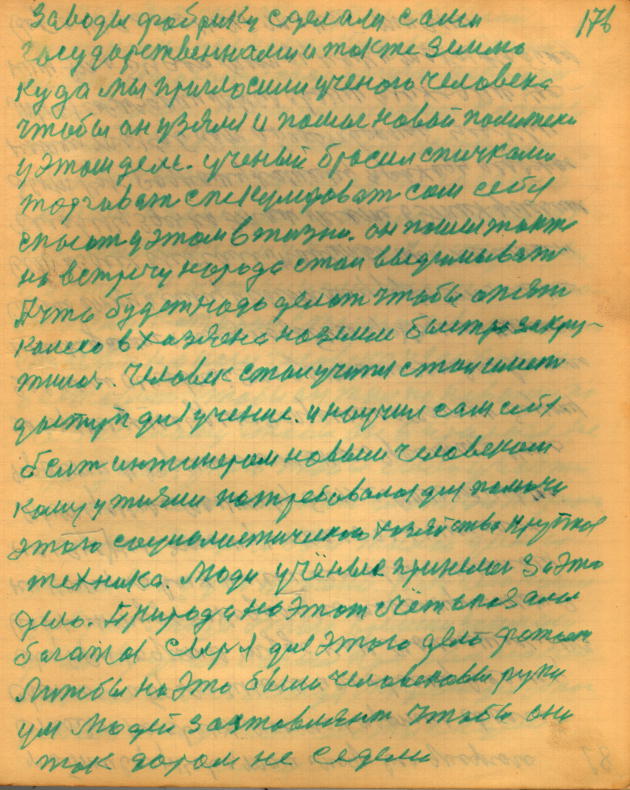 176
Заводы фабрики сделали сами
государственнами и также землю
куда мы пригласили ученого человека
чтобы он узялся и пошел новой политеки
у этом деле. ученый бросил спичками
торгават спекулироват сам себя
спасат у этом в жизни. он пошел также
на встречу народа стал выдумыват
А что будет надо делат чтобы опять
колесо в хазяена на земле быстро закру-
тилос. Человек стал учится стал имет
доступ для учение. и научил сам себя
быт инжинером новым человеком
кому у жизни потребовалос для помочи
этого социалистического хозяйства крупная
техника. Люди учёные принелис за это
дело. Природа на этот счёт сказала
багатая сырья для этого дела фатает
Лиж бы на это были человековы руки
ум Людей заставляет чтобы они
так даром не седели